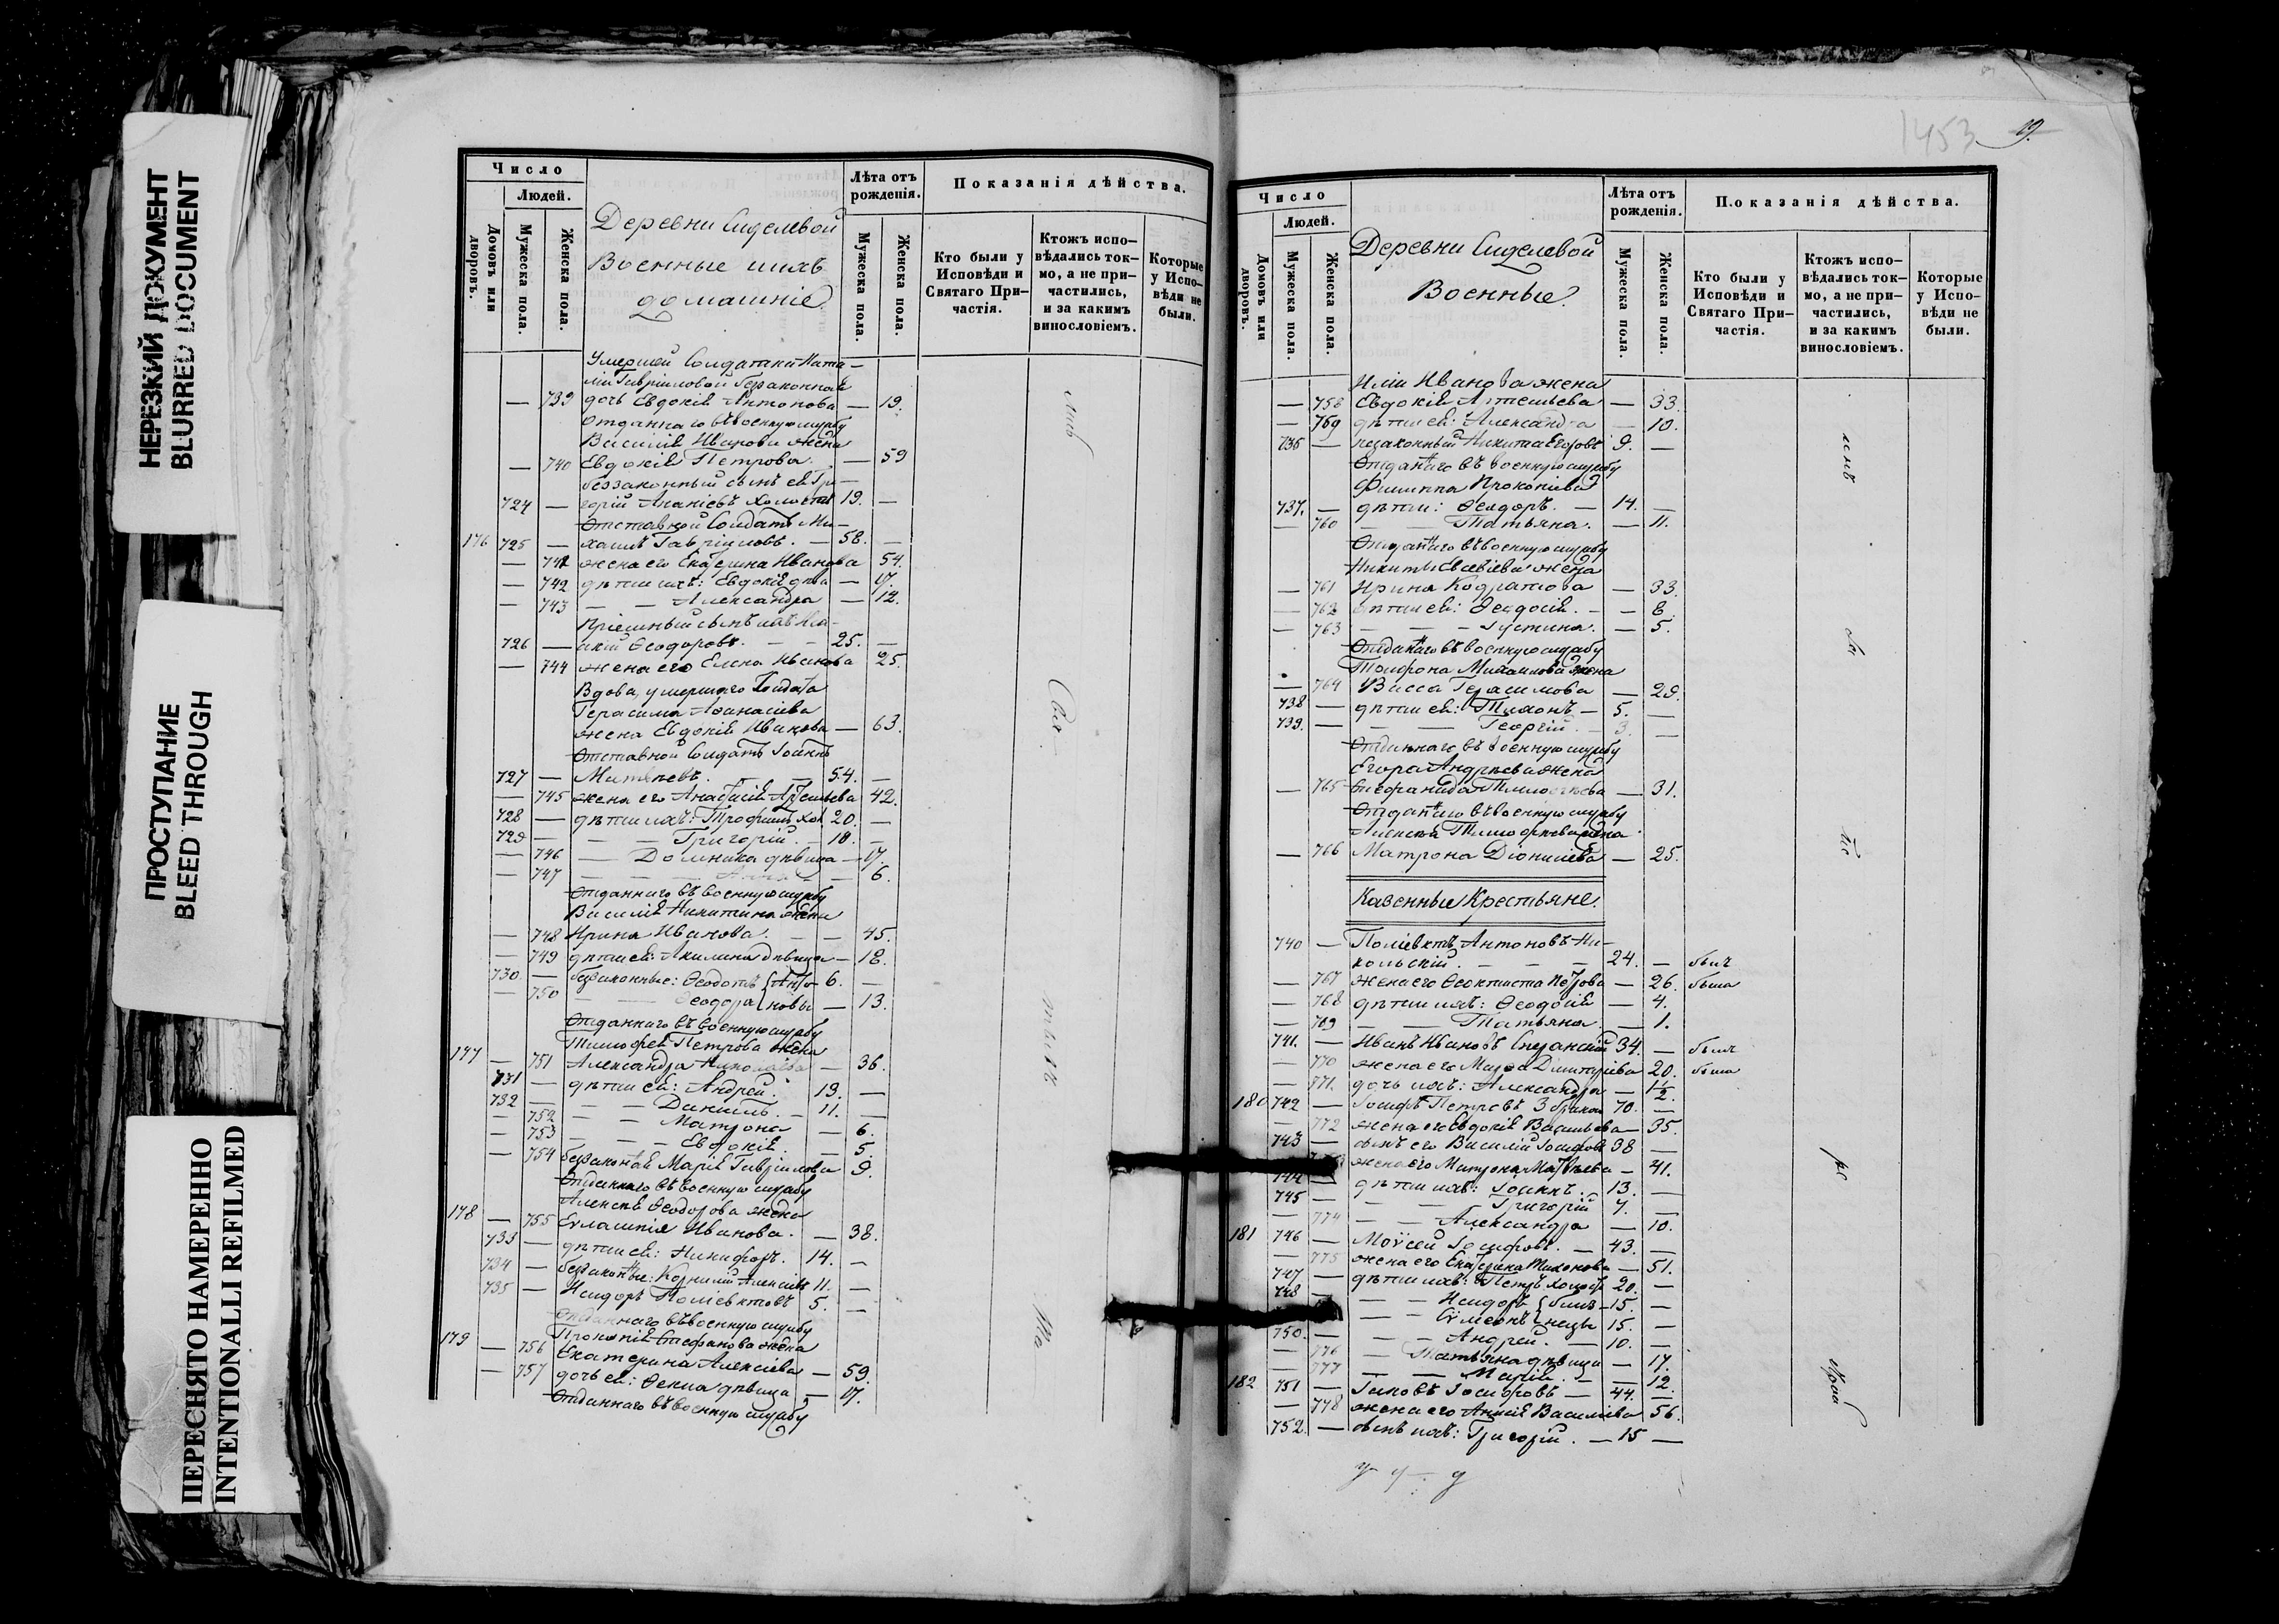 НЕРЕЗКИЙ ДОКУМЕНТ
BLURRED DOCUMENT
ПРОСТУПАНИЕ
BLEED THROUGH
ПЕРЕСНЯТО НАМЕРЕННО
INTENTIONALLI REFILMED
Число
Людей.
Домовъ или дворовъ.
Мужеска пола.
Женска пола.
Деревни Сиделевой
Военные и ихъ
домашніе
Лѣта отъ рожденія.
Мужеска пола.
Женска пола.
Показанія дѣйства.
Кто были у Исповѣди и Святаго Причастія.
Ктожъ исповѣдались токмо, а не причастились, и за какимъ винословіемъ.
Которые у Исповѣди не были.
Умершей Солдатки Ната-
ліи Гавріиловой беззаконная
— 739 дочь Евдокія Антонова — 19.
Отданнаго въ военную службу
Василія Иванова жена
— 740 Евдокія Петрова. — 59
беззаконный сынъ ея Гри-
724 — горій Ананіевъ холостъ 19. —
Отставной Солдатъ Ми-
176 725 — хаилъ Гавріиловъ. — 58. —
— 741 жена его Екатерина Иванова 54.
— 742 дѣти ихъ: Евдокія дѣва — 17.
— 743 — — Александра — 12.
Пріемный сынъ ихъ
726 — Ѳеодоровъ. — — 25. —
— 744 жена его Елена Иванова 25.
Вдова, умершаго Солдата
Герасима Аѳанасіева
жена Евдокія Иванова — 63.
Отставной Солдатъ Іоаннъ
727 — Матвѣевъ. — — 54. —
— 745 жена его Анастасія Артемьева 42.
728 — дѣти ихъ: Трофимъ хол. 20. —
729 — — — Григорій. — 18. —
— 746 — Домника дѣвица — 17.
— 747 — — — Анна — — 6.
Отданнаго въ военную службу
Василія Никитина жена
— 748 Ирина Иванова. — — 45.
— 749 дѣти ея: Акилина дѣвица — 18.
730 — беззаконные: Ѳеодотъ Анто- 6. —
— 750 — — Ѳеодора новы — 13.
Отданнаго въ военную службу
Тимофея Петрова жена
177 — 751 Александра Николаева — 36.
731 — дѣти ея: Андрей. 19. —
732 — — — Даніилъ. — 11. —
— 752 — — Матрона — 6.
— 753 — — — Евдокія. — 5.
— 754 беззаконная Марія Гавріилова 9.
Отданнаго въ военную службу
Алексѣя Ѳеодорова жена
178 — 755 Евлампія Иванова. — 38.
733 — дѣти ея: Никифоръ. 14. —
734 — беззаконные: Корнилій Алексіевъ 11. —
735 — Исидоръ Поліевктовъ 5. —
Отданнаго въ военную службу
Прокопія Стефанова жена
179 — 756 Екатерина Алексіева — 59.
— 757 дочь ея: Ѳекла дѣвица — 17.
Отданнаго въ военную службу
1453
19.
Число
Людей.
Домовъ или дворовъ.
Мужеска пола.
Женска пола.
Деревни Сиделевой
Военные.
Лѣта отъ рожденія.
Мужеска пола.
Женска пола.
Показанія дѣйства.
Кто были у Исповѣди и Святаго Причастія.
Ктожъ исповѣдались токмо, а не причастились, и за какимъ винословіемъ.
Которые у Исповѣди не были.
Иліи Иванова жена
— 758 Евдокія Артемьева — 33.
— 759 дѣти ея: Александра — 10.
736 — незаконный Никита Егоровъ 9. —
Отданнаго въ военную службу
Филиппа Прокопіева
737. — дѣти: Ѳеодоръ. — 14. —
— 760 — — Татьяна. — 11.
Отданнаго въ военную службу
Никиты Евсевіева жена
— 761 Ирина Кодратова — 33.
— 762 дѣти ея: Ѳеодосія. — — 8.
— 763 — — — Іустина. — 5.
Отданнаго въ военную службу
Трифона Михаилова жена
— 764 Васса Герасимова — 29.
738 — дѣти ея: Тихонъ — 5. —
739. — — — Георгій. — 3. —
Отданнаго въ военную службу
Егора Андреева жена
— 765 Стефанида Тимофеева — 31.
Отданнаго въ военную службу
Алексѣя Тимофеева жена
— 766 Матрона Діонисіева — 25.
Казенные Крестьяне.
740 — Поліевктъ Антоновъ Ни-
кольскій. — — — 24. — былъ
— 767 жена его Ѳеоктиста Петрова — 26. была
— 768 дѣти ихъ: Ѳеодосія — 4.
— 769 — — Татьяна — 1.
741. — Иванъ Ивановъ Сперанскій 34. — былъ
— 770 жена его Мавра Димитріева 20. была
— 771. дочь ихъ: Александра — 1/2.
180 742 — Іосифъ Петровъ 3 бракомъ 70. —
— 772 жена его Евдокія Васильева — 35.
743 — сынъ его Василій Іосифовъ 38 —
жена его Матрона Матвѣева — 41.
744 — дѣти ихъ: Іоаннъ. 13. —
745 — — — Григорій 7. —
— 774 — — Александра — 10.
181 746 — Моѵсей Іосифовъ. — 43. —
— 775 жена его Екатерина Тихонова — 51.
747 — дѣти ихъ: Петръ холостъ 20. —
748 — — — Исидоръ близ- 15. —
— — Сѵмеонъ нецы 15. —
750. — — — Андрей. — 10. —
— 776 — Татьяна дѣвица — 17.
— 777 — — Марія. — — 12.
182 751 — Іаковъ Іосифовъ — 44. —
— 778 жена его Анисія Василіева 56.
752. — сынъ ихъ: Григорій. — 15 —